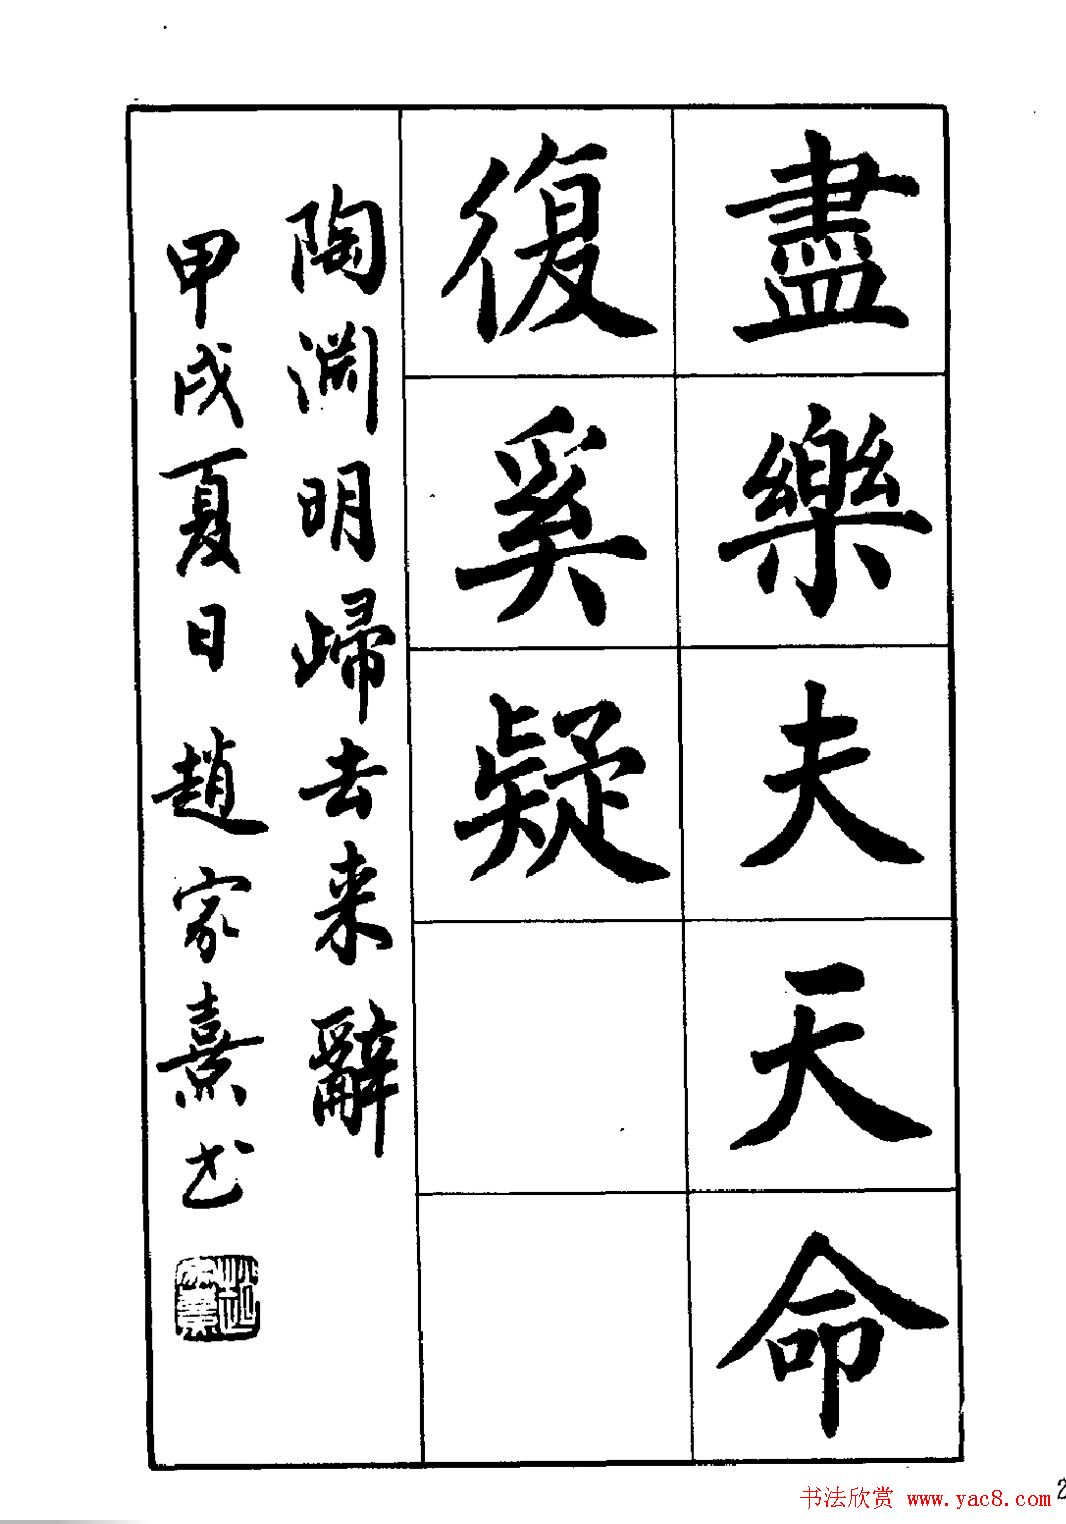 盡樂夫天命
復奚疑
陶淵明歸去来辭
甲戌夏日趙家熹书
趙家熹
书法欣赏 www.yac8.com
2